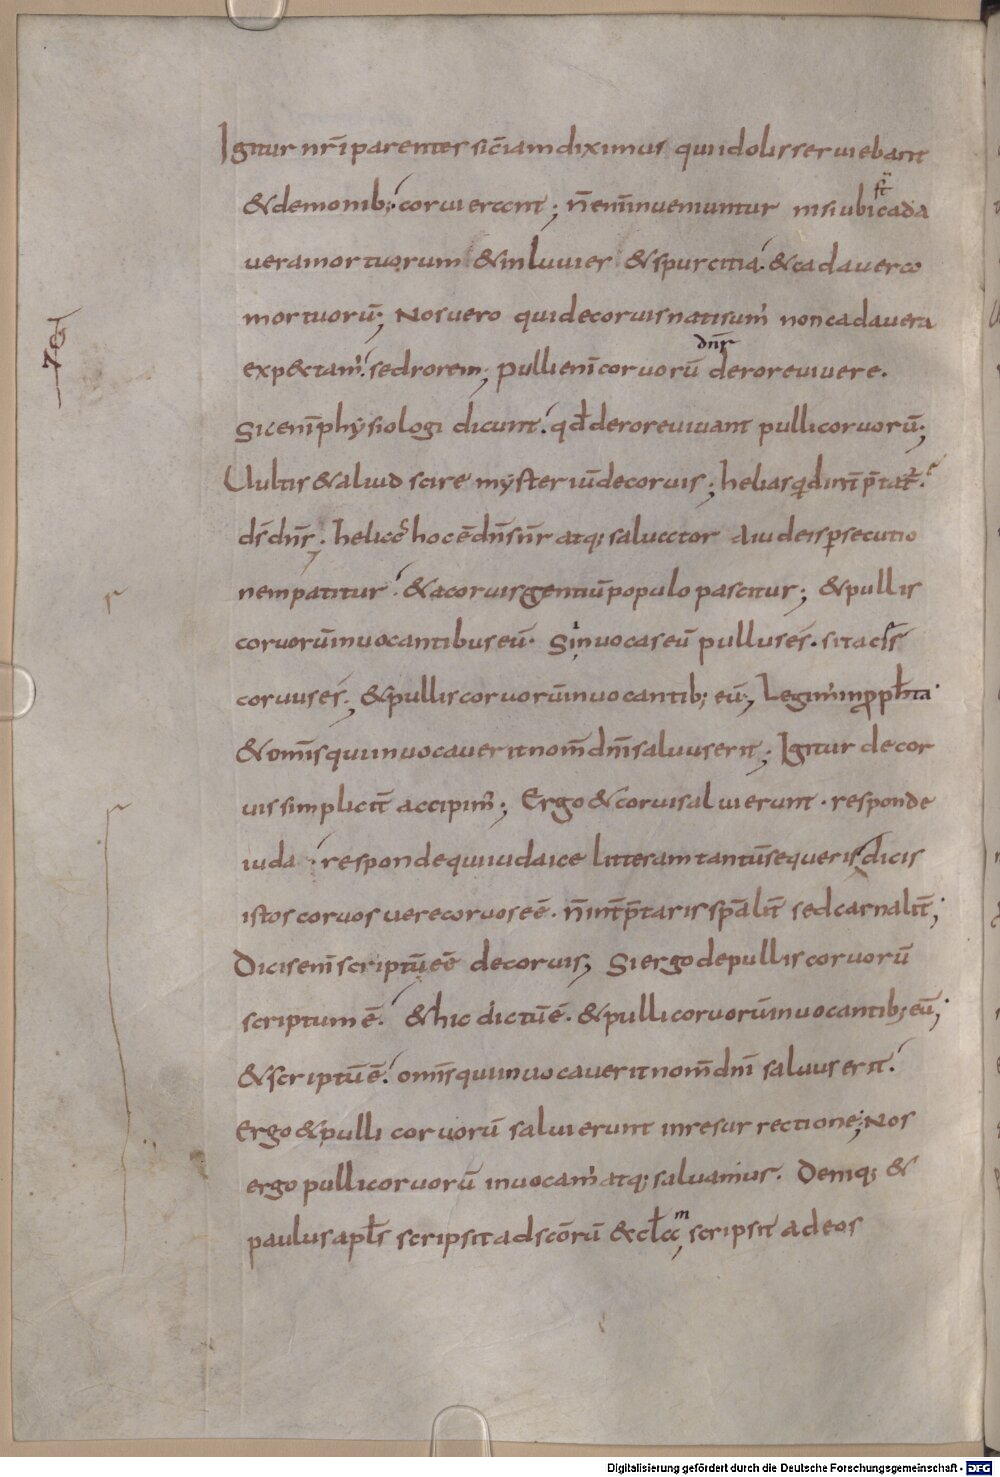 Igitur nr̄i parentes sic̄ iam diximus qui idolis serviebant
& demonib; corvi erant; n̄ enim̄ inveniuntur nisi ubi s̄t cada
vera mortuorum & inluvies & spurcitia. & cadavera
mortuorū; Nos vero qui de corvis nati sum' non cadavera
expectam'. sed rorem; pulli eni̅ corvorū dn̄r de rore vivere.
Sic enī physiologi dicunt. qđ de rore vivant pulli corvorū;
Uultis & aliud scire mysteriū de corvis; helias qđ int̄p̄tat̄.
ds̄ dn̄s; helias hoc ē dn̄s nr̄ atq; salvator A iudeis psecutio
nem patitur. & a corvis gentiū populo pascitur; & pullis
corvorū invocantibus eū. Si invocas eū pullus és. si tac̄s
corvus és; & pullis corvorū invocantib; eū; Legim' in ppħia
& omīs qui invocaverit nom̄ dn̄i salvus erit; Igitur de cor
vis simplicit̄ accipim'; Ergo & corvi salvi erunt. responde
iuda. responde qui iudaice litteram tantū sequeris dicis
istos corvos vere corvos eē. n̄ int̄p̄taris sp̄alit̄ sed carnalit̄;
Dicis enī scriptū eē de corvis; Si ergo de pullis corvorū
scriptum ē. & hic dictū ē. & pulli corvorū invocantib; eū;
& scriptū ē. omīs qui invocaverit nom̄ dn̄i salvus erit.
Ergo & pulli corvorū salvi erunt in resurrectione; Nos
ergo pulli corvorū invocam' atq; salvamus. Deniq; &
paulus apl̄s scripsit ad sc̄orū & ecl̄am, scripsit ad eos
Digitalisierung gefördert durch die Deutsche Forschungsgemeinschaft - DFG